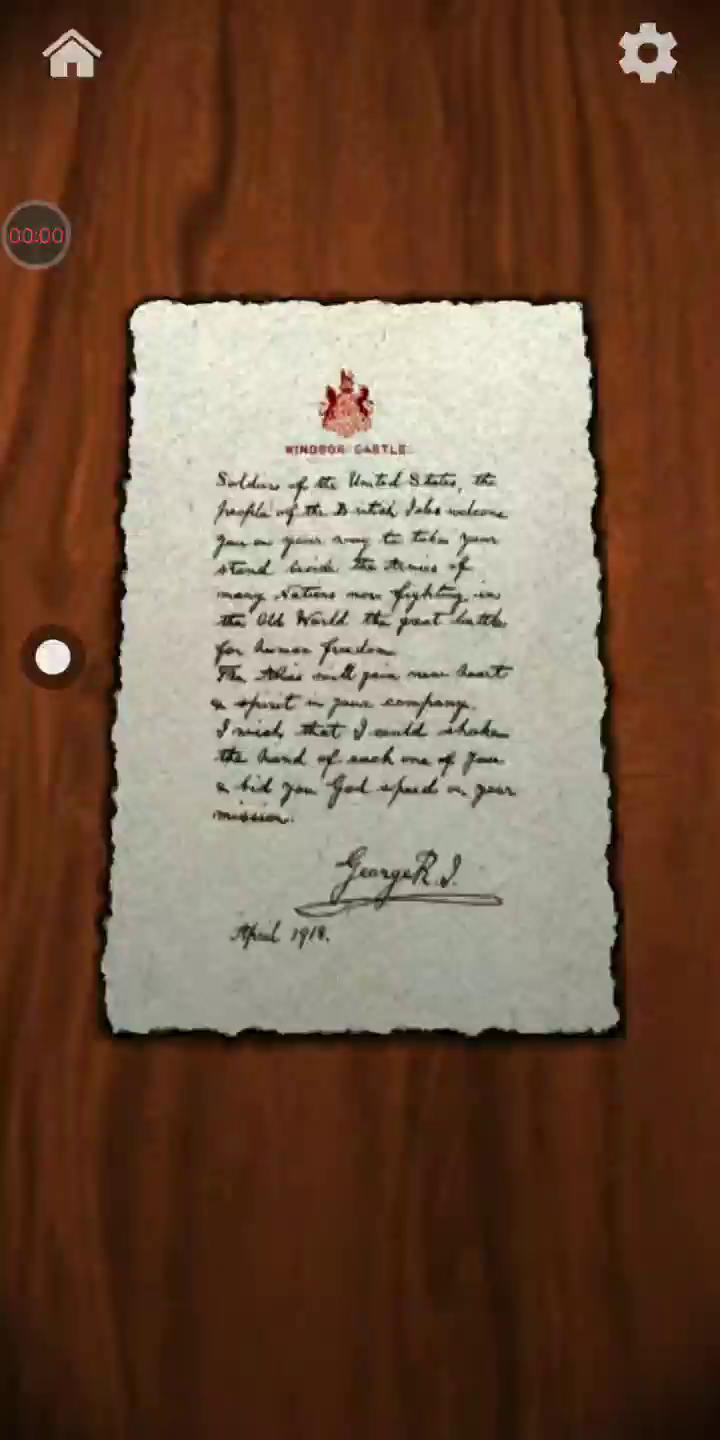 00:00
WINDSOR CASTLE
Soldiers of the United States, the
people of the British Isles welcome
you on your way to take your
stand beside the Armies of
many Nations now fighting in
the Old World the great battle
for human freedom.
The Allies will gain new heart
& spirit in your company.
I wish that I could shake
the hand of each one of you
& bid you God speed on your
mission.
George R.I.
April 1918.